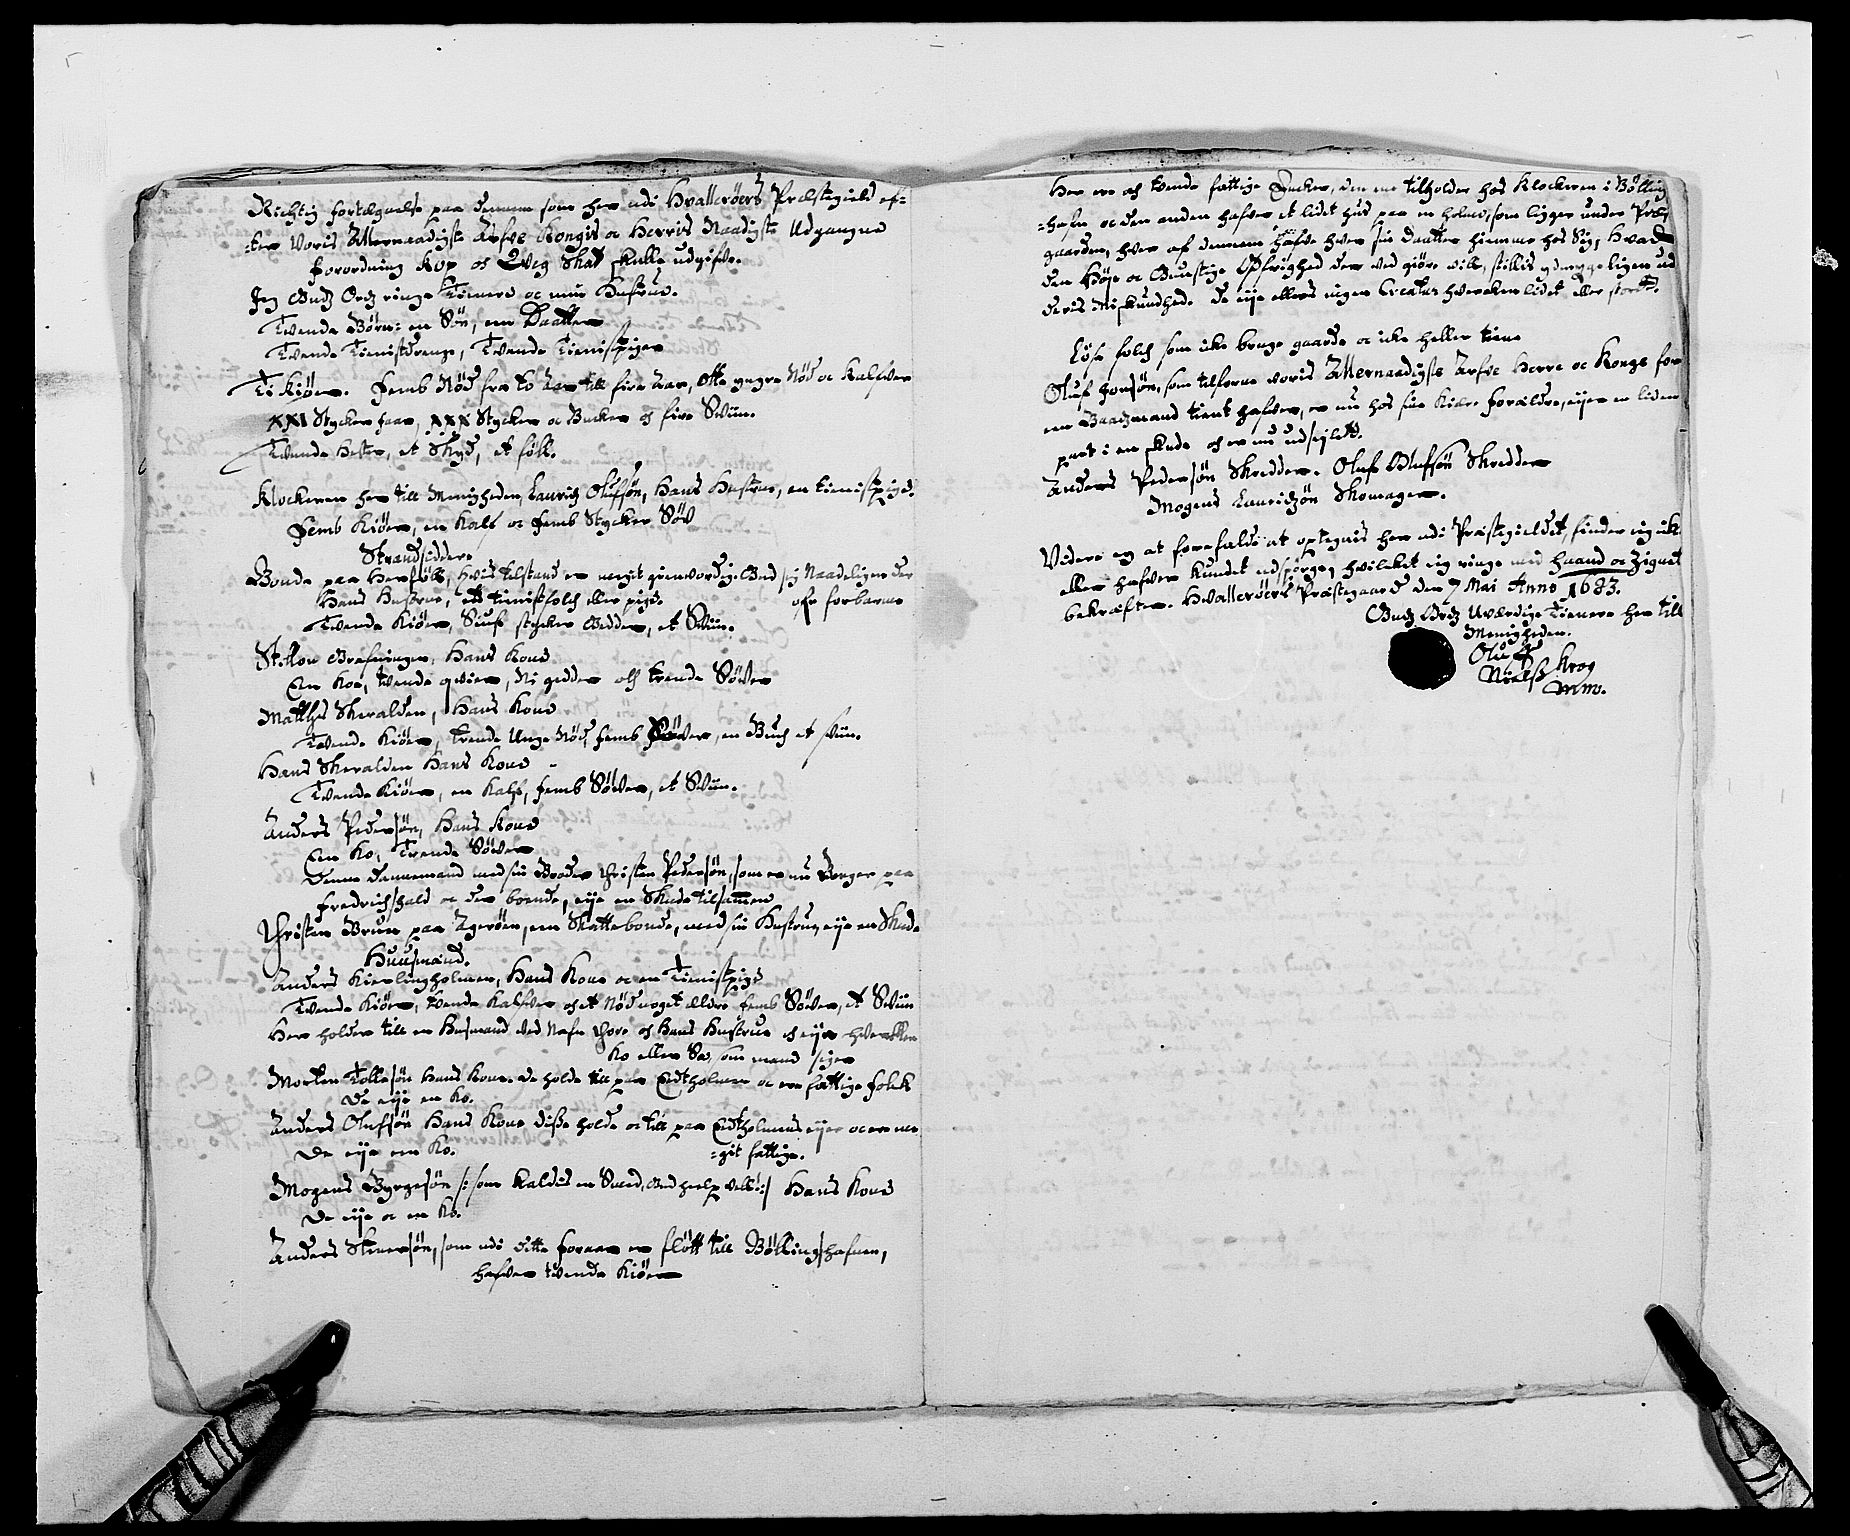 Richtig fortegnelse paa dennem som her udi Hvallerøers Præstegield ef-
-ter Voris Allernaadigste Arfve Kongis oc Herris Naadigste Udgangne
forordning Kop och Qveg Skat skulle udgifve.
Jeg Gudz Ordz ringe Tienere oc min Hustrue.
Tvende Børn: en Søn, en Daatter
Tvende Tienistdrenge, Tvende Tienistpiger
Ti Kiør. femb Nød fra to Aar till fire Aar, otte yngre Nød oc Kalfver
XXI Stycker faar, XXX Stycker oc Bucker och fire Sviin.
Tvende Hester, et Skyd, et föll.
Klockeren her till Menigheden, Lauritz Olufsøn, Hans Hustrue, en tienistpige.
Femb Kiør, en Kalf oc femb Stycker Søv
Strandsiddere
Bonde paa Herføll, hvis tilstand er meget gienvordig, Gud sig Naadeligen der
ofr forbarme
Hans Hustrue, tienistfolch eller pige.
Tvende Kiør, Siuf stycker Gedder, et Sviin.
Hans Kone
En Koe, tvende qvier, Ni gedder och trende Søver
Matthis Skeralden, Hans Kone
Tvende Kiør, trende Unge Nød, femb Søver, en Buch et sviin.
Hans Skeralden Hans Kone
Tvende Kiør, en Kalf, femb Søver, et Sviin.
Anders Pedersøn, Hans Kone
En Ko, Trende Søver
Denne dannemand med sin Broder Christen Pedersøn, som er nu Borger paa
fredrichshald oc der boende, eye en Skude tilsammen
Christen Bruun paa Agerøen, en Skattebonde, med sin Hustrue, eye en Skude
Huusmænd.
Anders Kierlingholmen, Hans Kone oc en Tienistpige
Tvende Kiør, tvende Kalfver och et Nød noget eldre, femb Søver, et Sviin
Her holder till en Husmand ved Nafn Thore och Hans Hustrue och eye hvercken
Ko eller So, som mand siger
Morten Tollesøn Hans Kone. De holde till paa Eedtholmen oc ere fattige folck
De eye en Ko.
Anders Olufsøn Hans Kone disse holde oc till paa Eedtholmens eye oc ere me-
-git fattige.
De eye en Ko.
Mogens Byrgesøn /: som kaldis en Smed, Gud hielpe vell :/ Hans Kone
De eye oc en Ko.
Anders Steensøn, som udi dette foraar er fløtt till Bøllingshafnen,
hafver tvende Kiør
Her ere och tvende fattige Encker, den ene tilholder hos Klockeren i Bølling-
-hafn oc den anden hafver et lidet huus paa en holme, som ligger under Præste
gaarden, hver af dennem hafve hver sin Daatter hiemme hos Sig, hvad
den Høye oc Gunstige Øfrighed der ved giøre vill, stillis ydmygeligen ud
deris Miskundhed. De eye ellers ingen Creatur hvercken lidet eller stort.
Løse folch som icke bruge gaarde oc icke heller tiene
Oluf Jonsøn, som tilforne voris Allernaadigste Arfve Herre oc Konge for
en Baadzmand tient hafver, er nu hos sine Kiere forældre, eyer en liden
part i en skude och er nu udseylet.
Anders Pedersøn Skredder. Oluf Olufsøn Skredder
Mogens Lauridzøn Skomager.
Videre eg at forefalde at optegnis her udi Præstegieldet, finder ieg icke
eller hafver kundet udspørge, hvilcket ieg ringe med haand oc Zignet
bekræfter. Hvallerøers Præstegaard den 7 Mai Anno 1683.
Gudz Ordz Uværdige Tienere her till
Menigheden.
Oluf
Nielss Krog
mm.